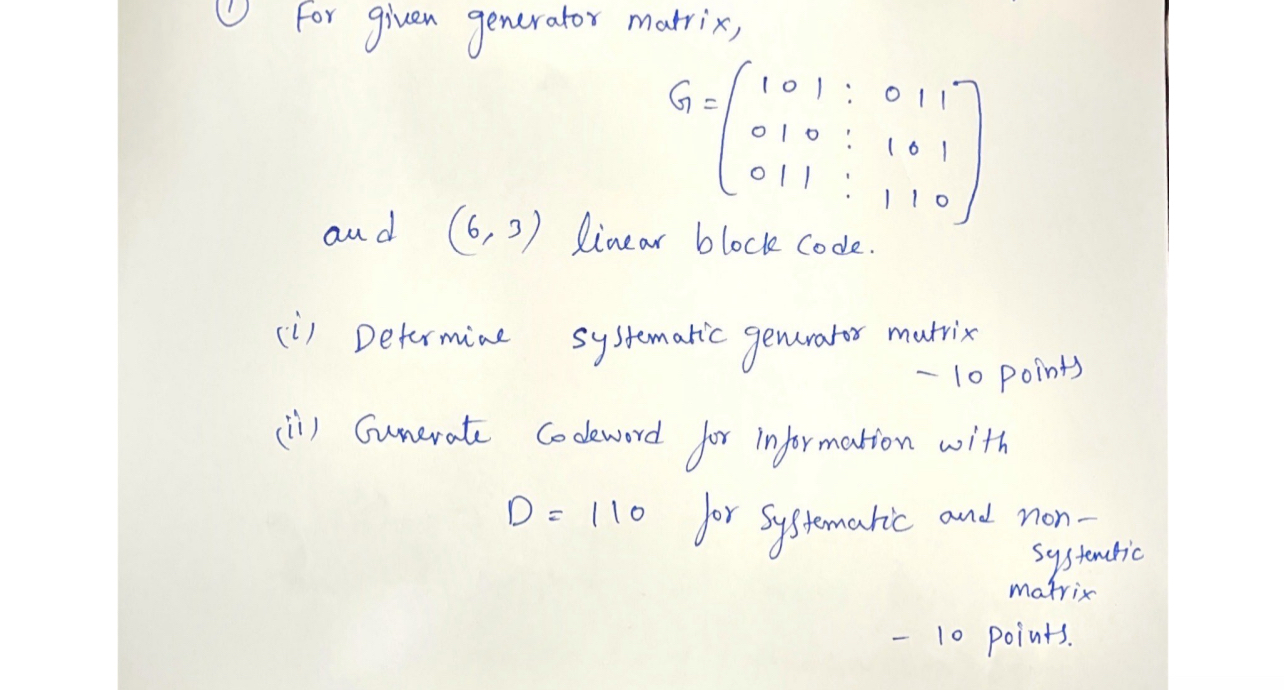 ① For given generator matrix,
G = ( 1 0 1 : 0 1 1
0 1 0 : 1 0 1
0 1 1 : 1 1 0 )
and (6,3) linear block code.
(i) Determine systematic generator mutrix
- 10 points
(ii) Generate Codeword for information with
D = 110 for Systematic and non-
systemetic
matrix
- 10 points.